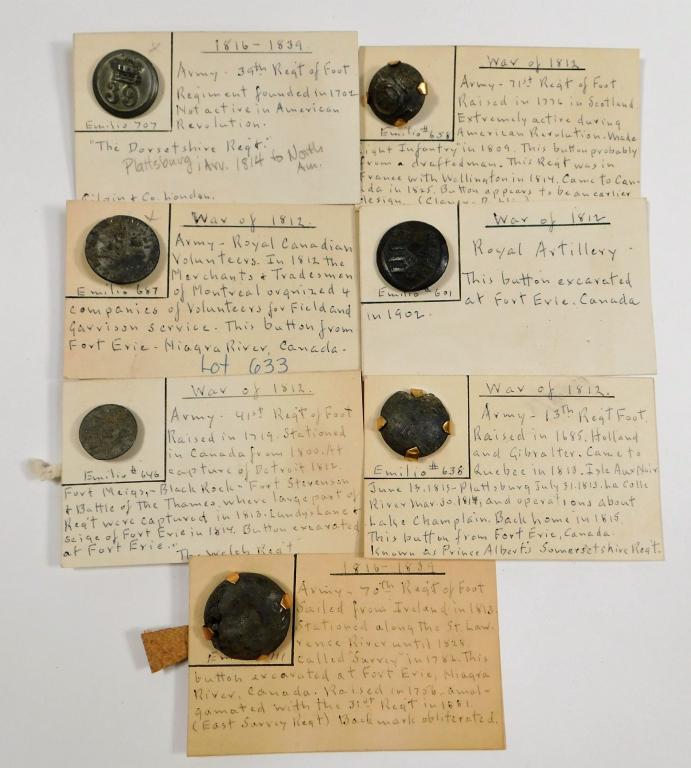 1816-1839
39
Army - 39th Reg't of Foot
Regiment founded in 1702
Not active in American
Revolution.
Emilio 707
"The Dorsetshire Reg't."
Plattsburg; Arr. 1814 to North
Am.
& Co. London.
War of 1812
Army - 71st Reg't of Foot
Raised in 1776 in Scotland
Extremely active during
American Revolution. Made
Emilio # 658
Light Infantry" in 1809. This button probably
from a drafted man. This Reg't was in
France with Wellington in 1814. Came to Can-
da in 1825. Button appears to be an earlier
design.
War of 1812.
Army - Royal Canadian
Volunteers. In 1812 the
Merchants & Tradesmen
Emilio 687
of Montreal orgnized 4
companies of Volunteers for Field and
Garrison service. This button from
Fort Erie - Niagra River, Canada.
Lot 633
War of 1812
Royal Artillery -
This button excavated
Emilio # 601
at Fort Erie. Canada
in 1902.
War of 1812.
Army - 41st Reg't of Foot
Raised in 1719. Stationed
in Canada from 1800. At
capture of Detroit 1812.
Emilio # 646
Fort Meigs - Black Rock - Fort Stevenson
& Battle of The Thames, where large part of
Reg't were captured in 1813. Lundys Lane &
seige of Fort Erie in 1814. Button excavated
at Fort Erie.
The Welch Reg't
War of 1812.
Army - 13th Reg't Foot.
Raised in 1685. Holland
and Gibralter. Came to
Quebec in 1813. Isle Aux Noir
Emilio # 638
June 13. 1813 - Plattsburg July 31. 1813. La Colle
River Mar. 30. 1814, and operations about
Lake Champlain. Back home in 1815.
This button from Fort Erie, Canada.
Known as Prince Albert's Somersetshire Reg't.
1816-1839
Army - 70th Reg't of Foot
Sailed from Ireland in 1813.
Stationed along the St. Law-
rence River until 1828.
called "Surrey" in 1782. This
button excavated at Fort Erie, Niagra
River, Canada. Raised in 1756. amal-
gamated with the 31st Reg't in 1881.
(East Surrey Reg't) Back mark obliterated.